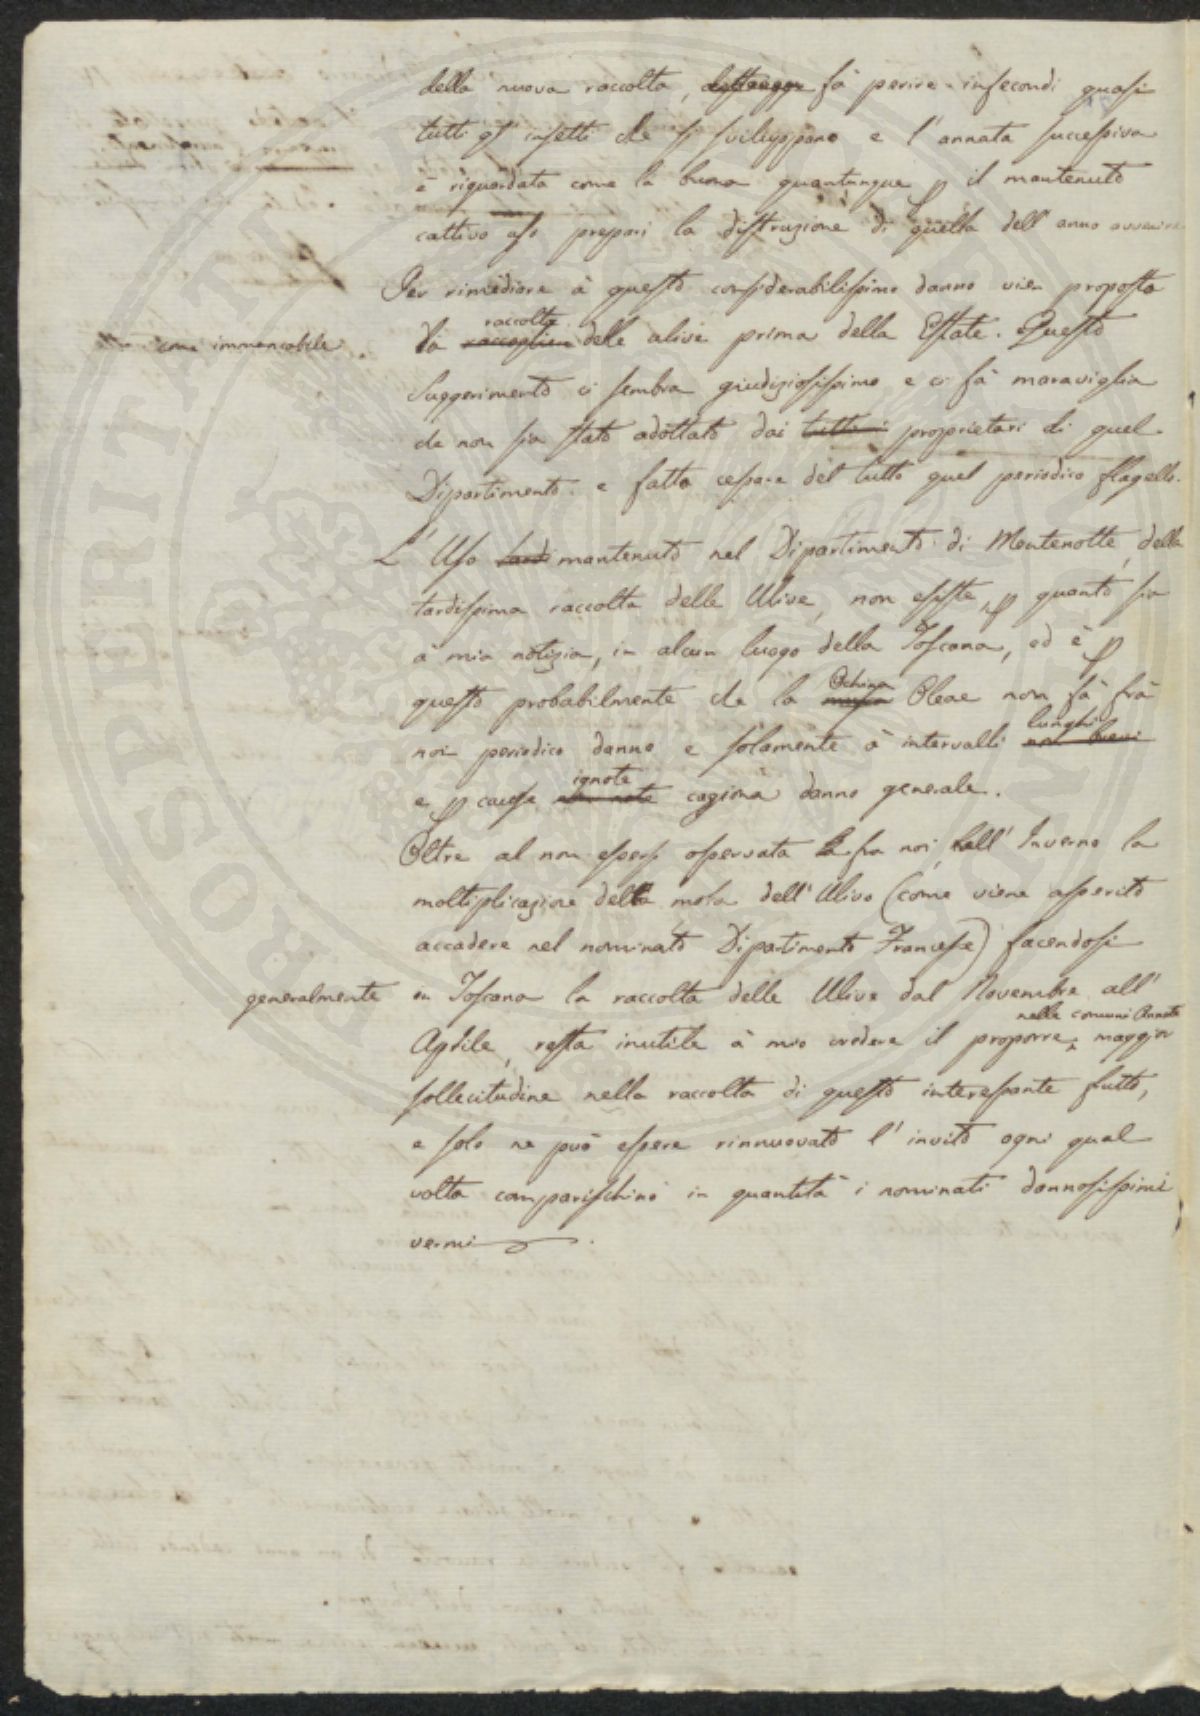 della nuova raccolta, distrugge fà perire infecondi quasi
tutti gl' insetti che si sviluppano e l'annata successiva
è riguardata come la buona quantunque p il mantenuto
cattivo uso prepari la distruzione di quella dell'anno avvenire
Per rimediare à questo considerabilissimo danno vien proposta
come immancabile
raccolta
la raccoglier delle olive prima della Estate. Questo
Suggerimento ci sembra giudiziosissimo e ci fà maraviglia
che non sia stato adottato dai tutti i proprietari di quel
Dipartimento e fatto cessare del tutto quel periodico flagello.
L' Uso tardi mantenuto nel Dipartimento di Montenotte, della
tardissima raccolta delle Ulive, non esiste, p quanto sia
à mia notizia, in alcun luogo della Toscana, ed è p
Ochina
questo probabilmente che la musca Oleae non fà frà
lunghi
noi periodico danno e solamente à intervalli non brevi
ignote
e p cause non note cagiona danno generale.
Oltre al non essersi osservata fra noi, nell' Inverno la
moltiplicazione della mosca dell'Ulivo (come viene asserito
accadere nel nominato Dipartimento Francese) facendosi
generalmente in Toscana la raccolta delle Ulive dal Novembre all'
nelle comuni Annate
Aprile, resta inutile à mio credere il proporre maggior
sollecitudine nella raccolta di questo interessante frutto,
e solo ne può essere rinnuovato l'invito ogni qual
volta comparischino in quantità i nominati dannosissimi
vermi.
PROSPERITATI